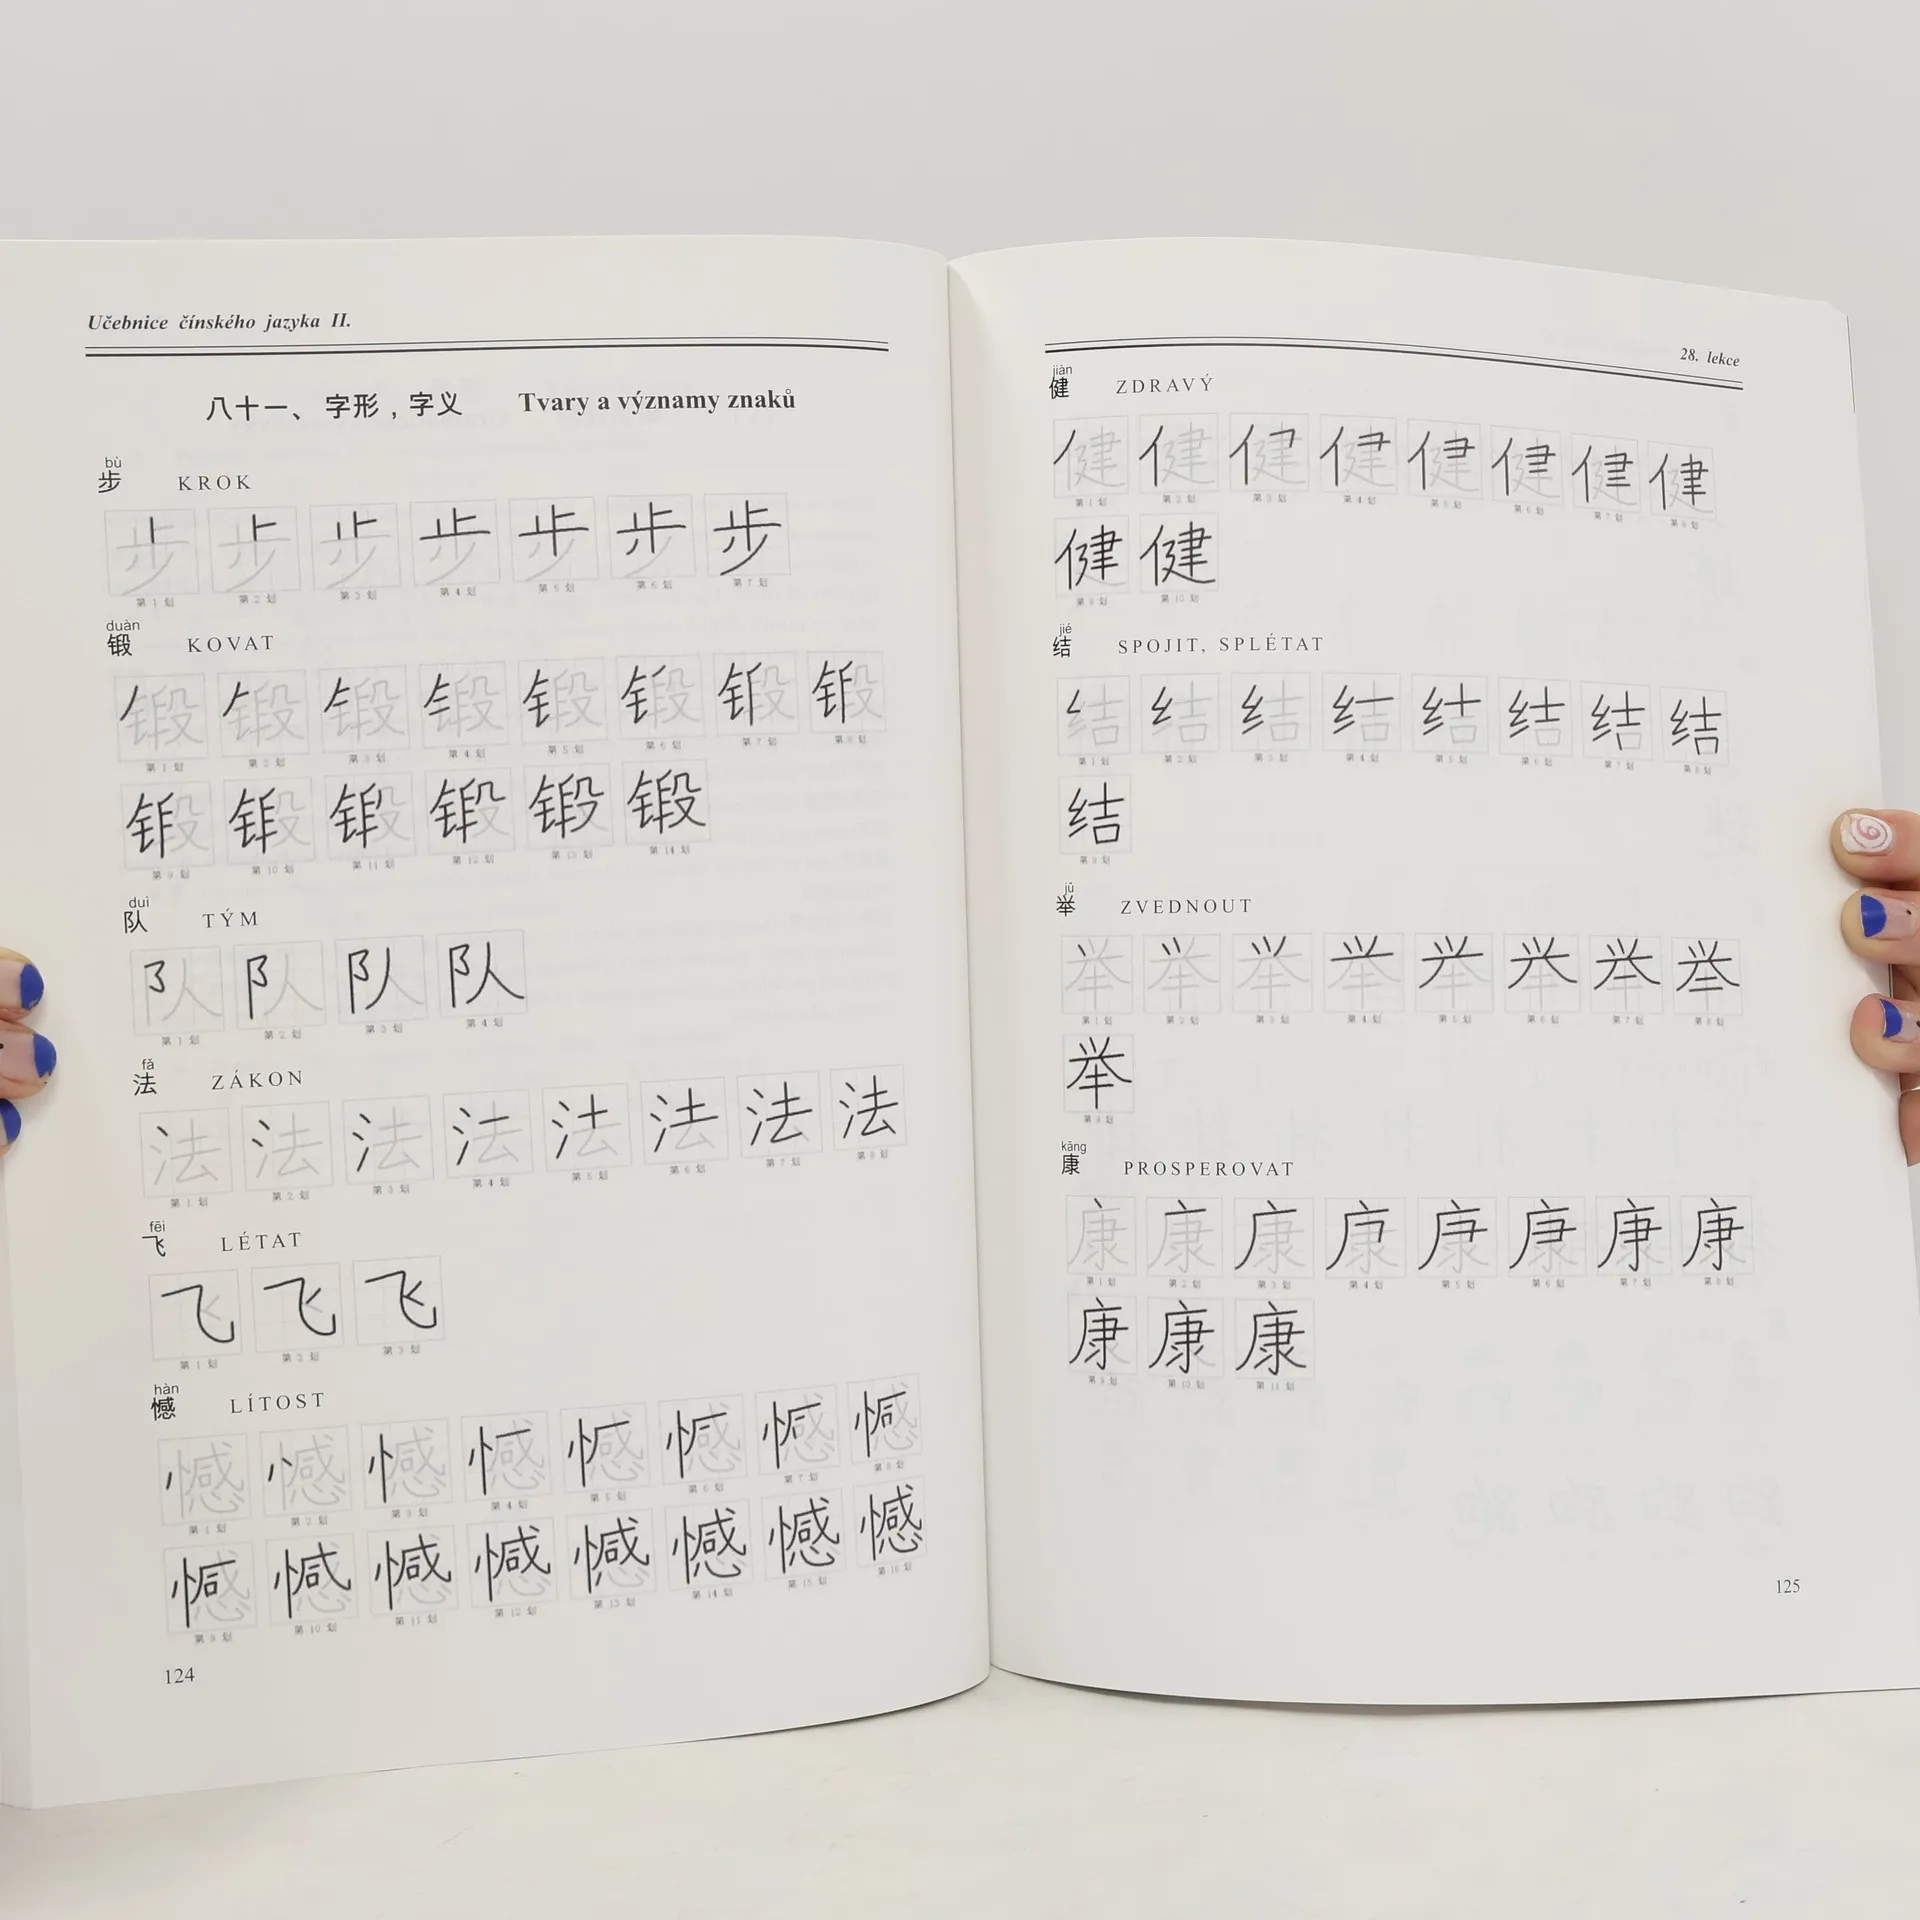 Učebnice čínského jazyka II.
八十一、 字形，字义 Tvary a významy znaků
bù
步 KROK
步 步 步 步 步 步 步
第 1 划 第 2 划 第 3 划 第 4 划 第 5 划 第 6 划 第 7 划
duàn
锻 KOVAT
锻 锻 锻 锻 锻 锻 锻 锻
第 1 划 第 2 划 第 3 划 第 4 划 第 5 划 第 6 划 第 7 划 第 8 划
锻 锻 锻 锻 锻 锻
第 9 划 第 10 划 第 11 划 第 12 划 第 13 划 第 14 划
duì
队 TÝM
队 队 队 队
第 1 划 第 2 划 第 3 划 第 4 划
fǎ
法 ZÁKON
法 法 法 法 法 法 法 法
第 1 划 第 2 划 第 3 划 第 4 划 第 5 划 第 6 划 第 7 划 第 8 划
fēi
飞 LÉTAT
飞 飞 飞
第 1 划 第 2 划 第 3 划
hàn
憾 LÍTOST
憾 憾 憾 憾 憾 憾 憾 憾
第 1 划 第 2 划 第 3 划 第 4 划 第 5 划 第 6 划 第 7 划 第 8 划
憾 憾 憾 憾 憾 憾 憾 憾
第 9 划 第 10 划 第 11 划 第 12 划 第 13 划 第 14 划 第 15 划 第 16 划
124
28. lekce
jiàn
健 ZDRAVÝ
健 健 健 健 健 健 健 健
第 1 划 第 2 划 第 3 划 第 4 划 第 5 划 第 6 划 第 7 划 第 8 划
健 健
第 9 划 第 10 划
jié
结 SPOJIT, SPLÉTAT
结 结 结 结 结 结 结 结
第 1 划 第 2 划 第 3 划 第 4 划 第 5 划 第 6 划 第 7 划 第 8 划
结
第 9 划
jǔ
举 ZVEDNOUT
举 举 举 举 举 举 举 举
第 1 划 第 2 划 第 3 划 第 4 划 第 5 划 第 6 划 第 7 划 第 8 划
举
第 9 划
kāng
康 PROSPEROVAT
康 康 康 康 康 康 康 康
第 1 划 第 2 划 第 3 划 第 4 划 第 5 划 第 6 划 第 7 划 第 8 划
康 康 康
第 9 划 第 10 划 第 11 划
125